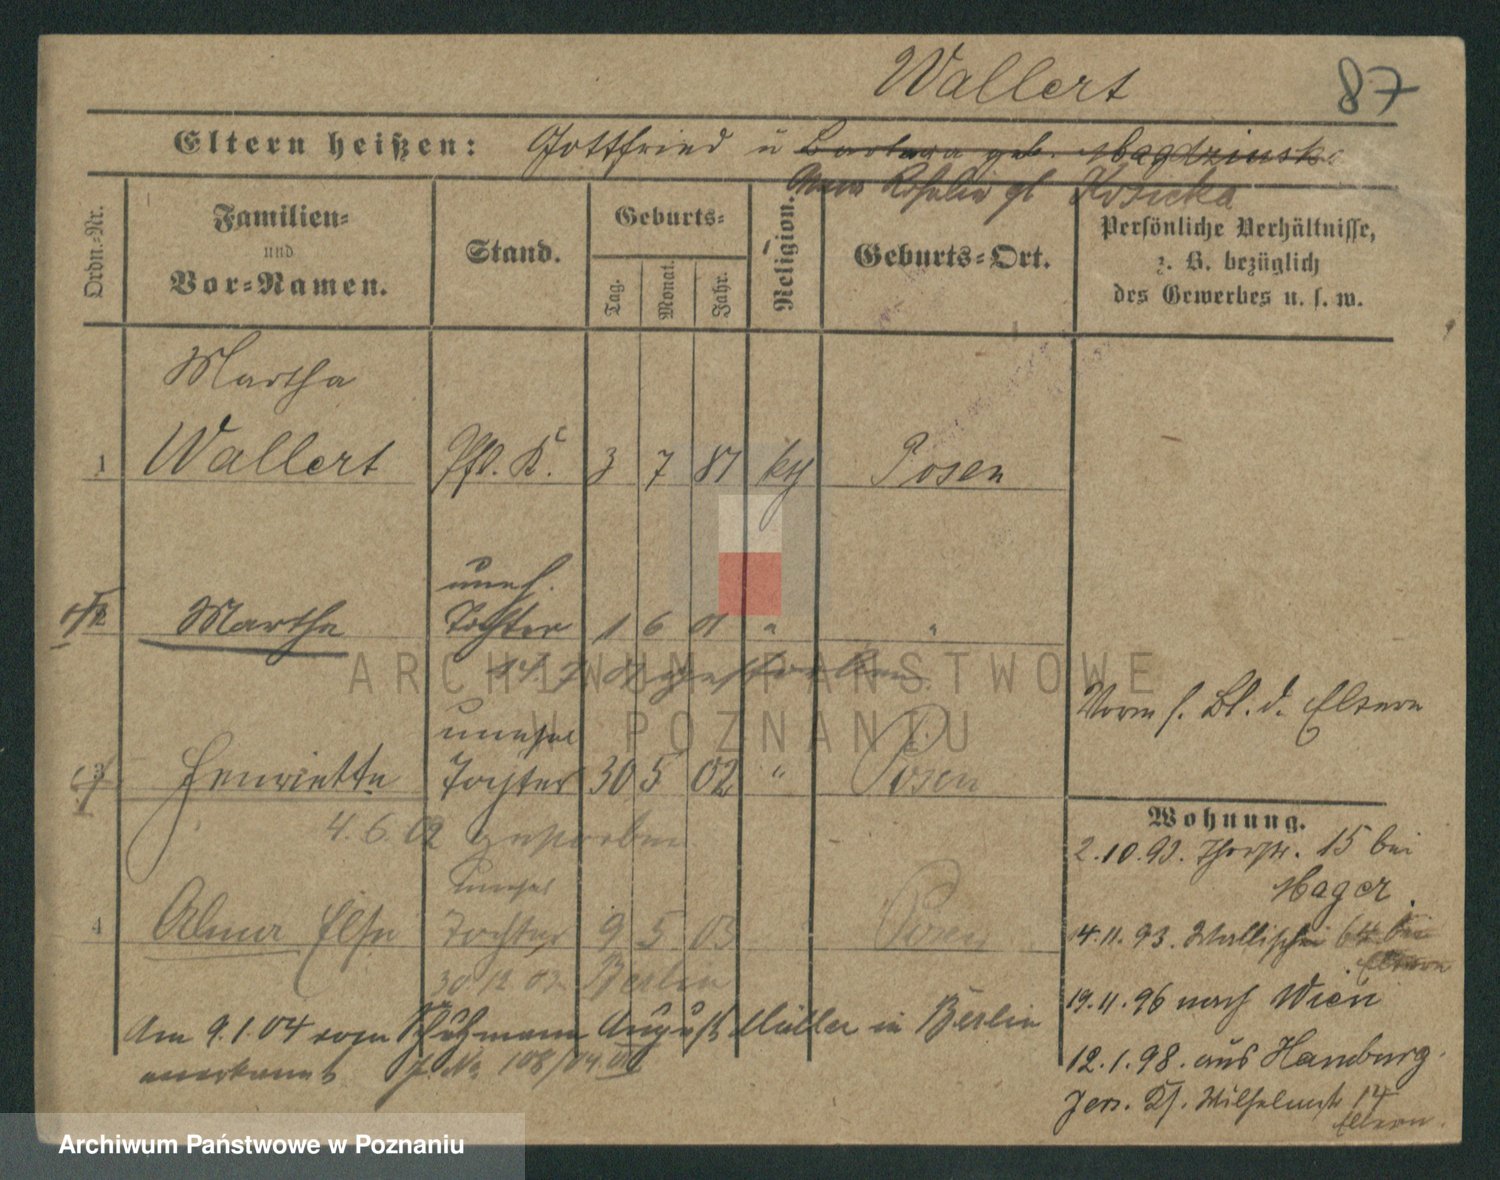 Wallert 87
Eltern heißen: Gottfried u Barbara geb. Magdzinska
Anna Rosalie gb Kosicka
Ordn.-Nr.
Familien-
und
Vor-Namen.
Stand.
Geburts-
Tag.
Monat.
Jahr.
Religion.
Geburts-Ort.
Persönliche Verhältnisse,
z. B. bezüglich
des Gewerbes u. s. w.
Martha
1 Wallert 3 7 81 Posen
uneh.
2 Martha Tochter 1 6 01 " "
14. 7 01 gestorben
Vorm s. Bl. d. Eltern
unehel
3 Henriette Tochter 30 5 02 " Posen
4. 6. 02 gestorben
Wohnung.
2.10.93. 15 bei
Hager.
unehel
4 Alma Else Tochter 9 5 03 Posen
14.11.93. Wallischei 64 bei
Eltern
30 12 03 Berlin
19.11.96 nach Wien
Am 9.1.04 vom August Müller in Berlin
anerkannt J. No 108/04 III
12.1.98. aus Hamburg.
Wilhelmstr 14
Eltern.
ARCHIWUM PAŃSTWOWE
W POZNANIU
Archiwum Państwowe w Poznaniu